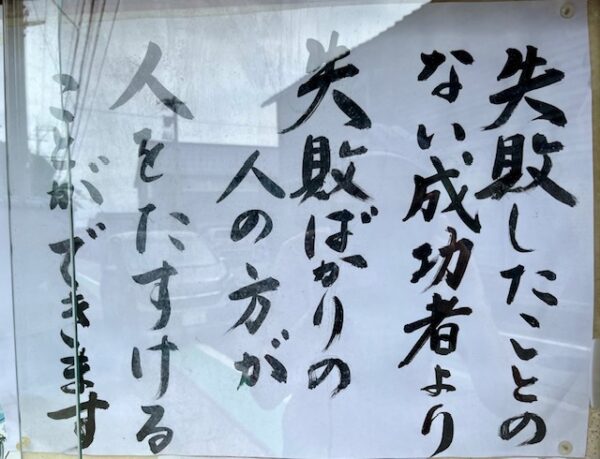 失敗したことの
ない成功者より
失敗ばかりの
人の方が
人をたすける
ことができます